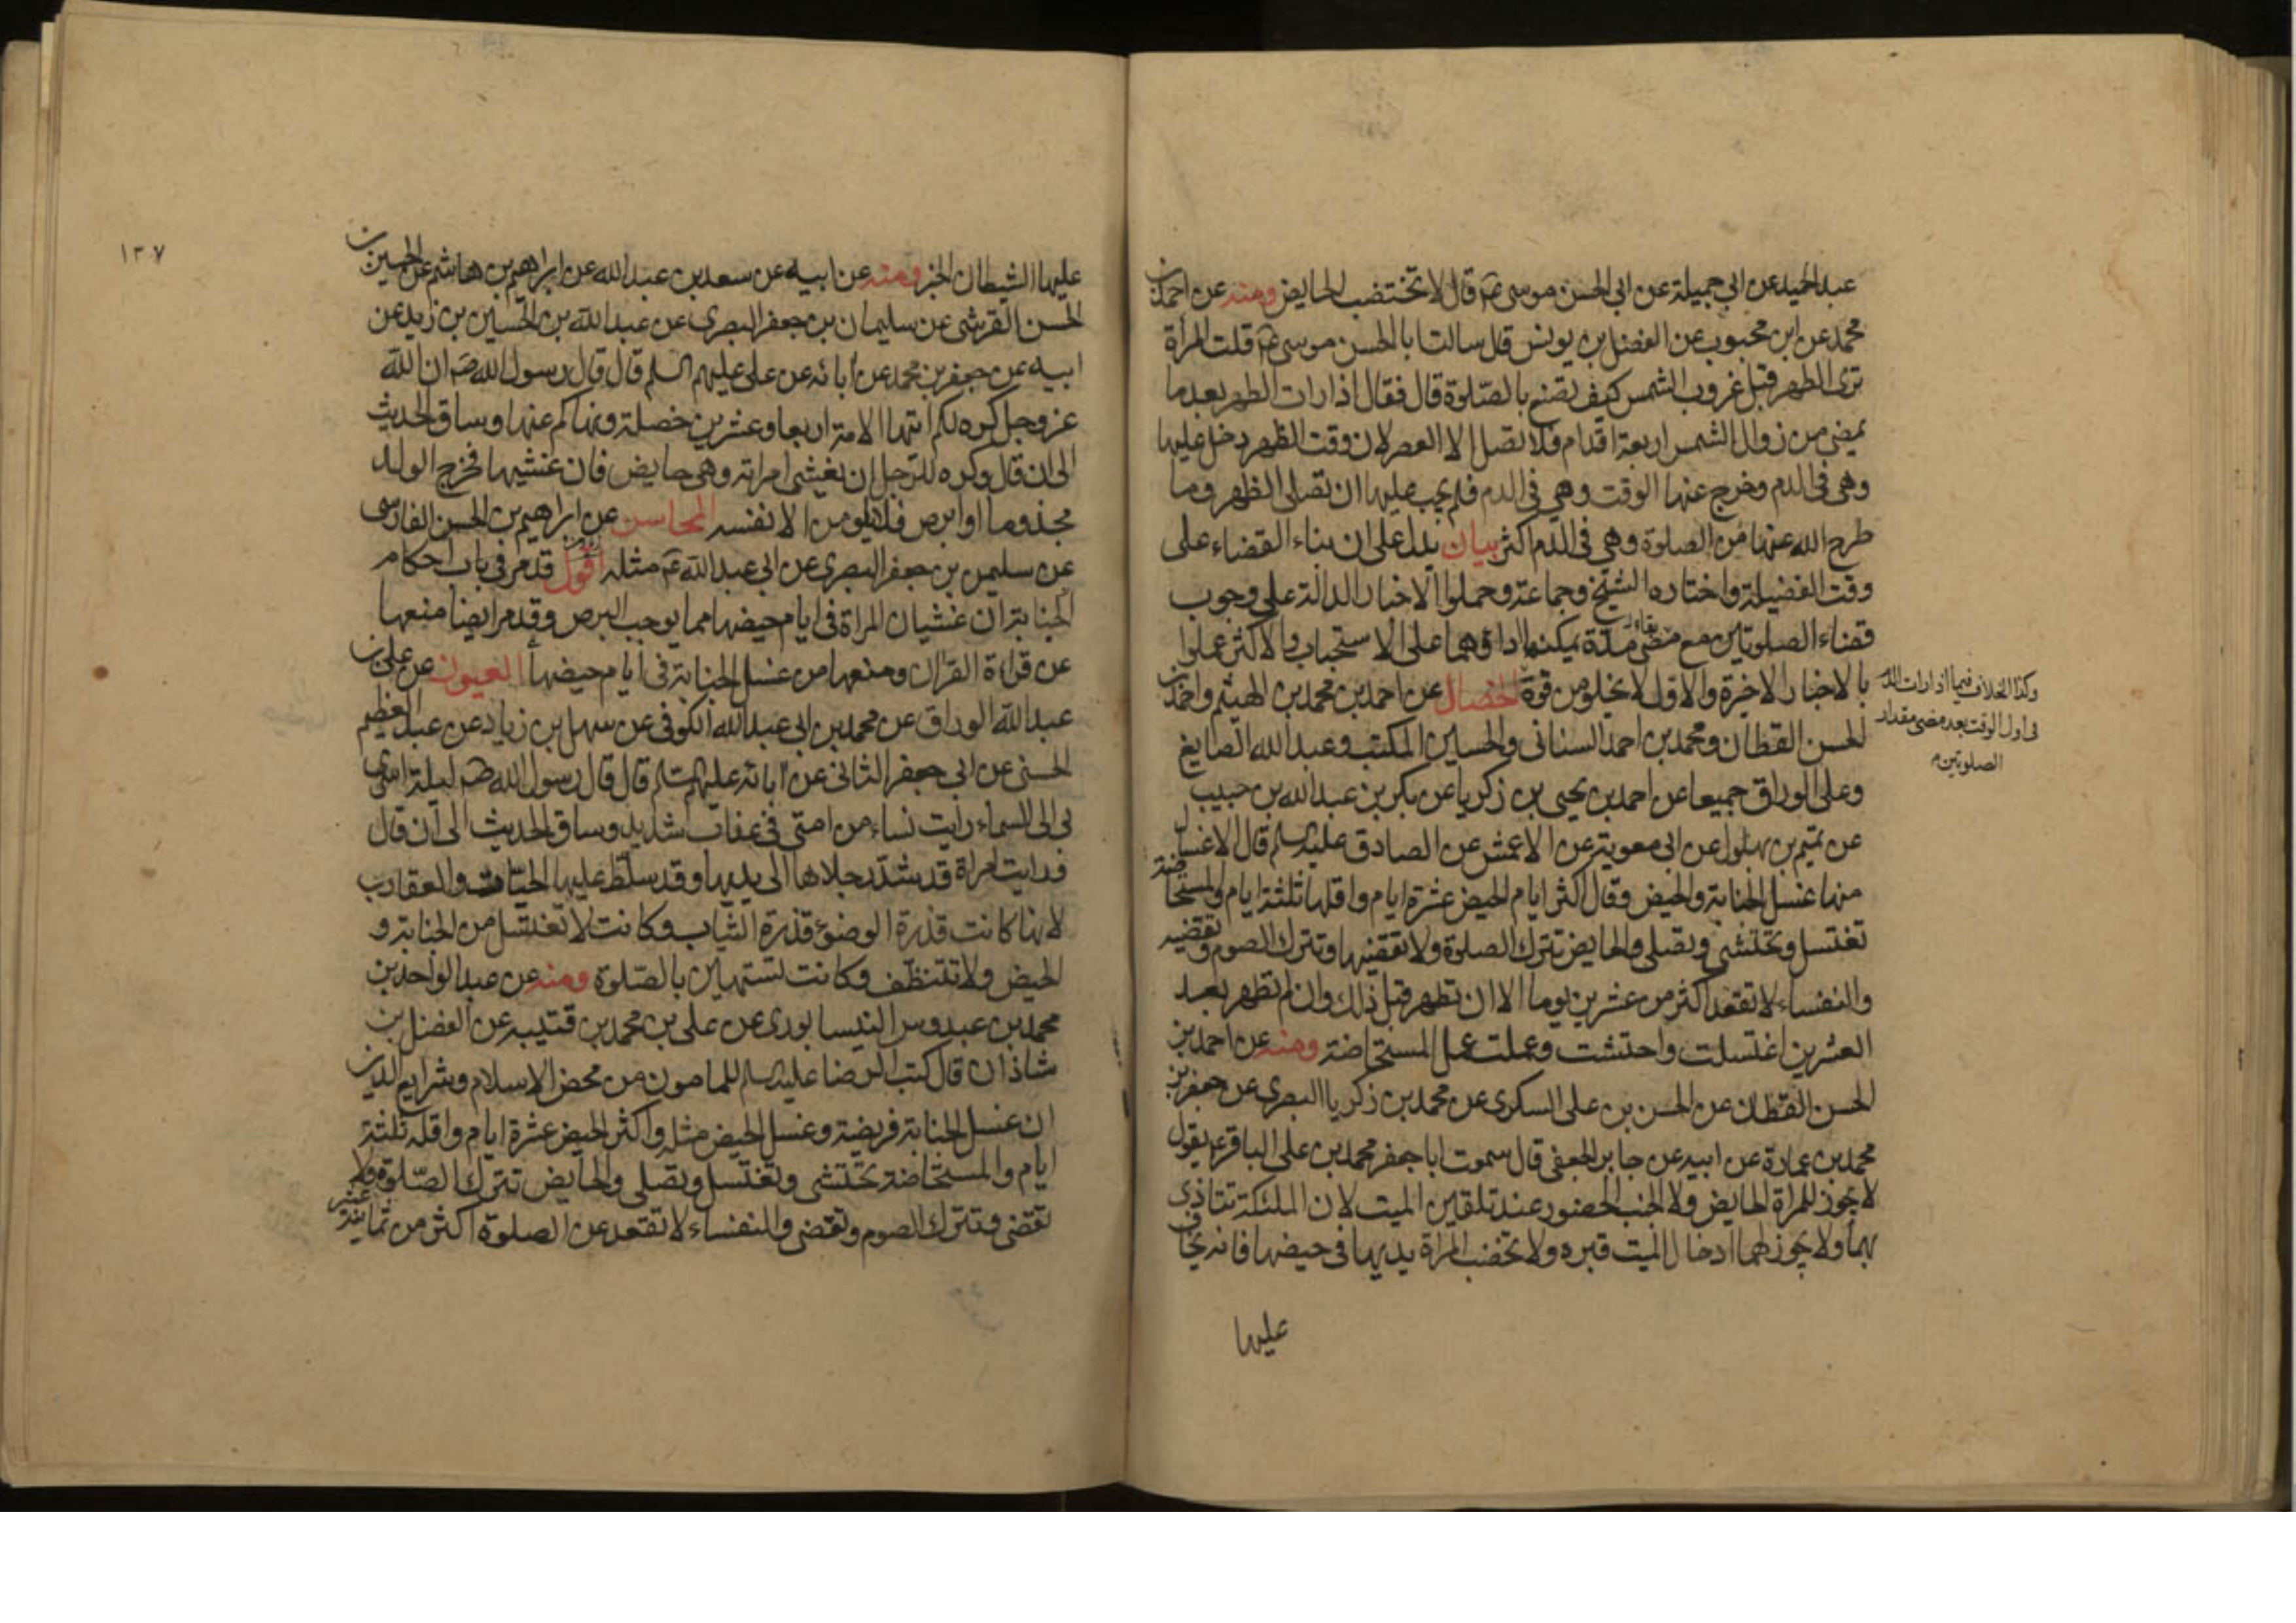 عبد الحميد عن ابي جميلة عن ابي الحسن موسى ع قال لا تختضب الحايض ومنه عن احمد بن
محمد عن ابن محبوب عن الفضل بن يونس قال سالت ابا الحسن موسى ع قلت المرأة
ترى الطهر قبل غروب الشمس كيف تصنع بالصّلوة قال فقال اذا رات الطهر بعد ما
يمضى من زوال الشمس اربعة اقدام فلا تصل الا العصر لان وقت الظهر دخل عليها
وهى فى الدم وخرج عنها الوقت وهي فى الدم فلم يجب عليها ان تصلى الظهر وما
طرح الله عنها من الصلوة وهي فى الدم اكثر بيان يدل على ان بناء القضاء على
وقت الفضيلة واختاره الشيخ وجماعة وحملوا الاخبار الدالة على وجوب
قضاء الصلوتين مع بقاء مدة يمكنها اداؤهما على الاستحباب والاكثر عملوا
بالاخبار الاخيرة والاول لا يخلو من قوة الخصال عن احمد بن محمد بن الهيثم واحمد بن
الحسن القطان ومحمد بن احمد السنانى والحسين المكتب وعبد الله الصايغ
وعلى الوراق جميعا عن احمد بن يحيى بن زكريا عن بكر بن عبد الله بن حبيب
عن تميم بن بهلول عن ابى معوية عن الاعمش عن الصادق عليه السلم قال الاغسال
منها غسل الجنابة والحيض وقال اكثر ايام الحيض عشرة ايام واقلها ثلثة ايام والمستحاضة
تغتسل وتحتشى وتصلى والحايض تترك الصلوة ولا تقضيها وتترك الصوم وتقضيه
والنفساء لا تقعد اكثر من عشرين يوما الا ان تطهر قبل ذلك وان لم تطهر بعد
العشرين اغتسلت واحتشت وعملت عمل المستحاضة ومنه عن احمد بن
الحسن القطان عن الحسن بن على السكرى عن محمد بن زكريا البصرى عن جعفر بن
محمد بن عمارة عن ابيه عن جابر الجعفى قال سمعت ابا جعفر محمد بن على الباقر ع يقول
لا يجوز للمراة الحايض ولا الجنب الحضور عند تلقين الميت لان الملئكة تتاذى
بهما ولا يجوز لهما ادخال الميت قبره ولا تختضب المراة يديها فى حيضها فانه يخاف
عليها
وكذا الخلاف فيما اذا رات الدم
فى اول الوقت بعد مضى مقدار
الصلوتين
١٣٧
عليها الشيطان الخبر ومنه عن ابيه عن سعد بن عبد الله عن ابراهيم بن هاشم عن الحسين بن
الحسن القرشى عن سليمان بن جعفر البصرى عن عبد الله بن الحسين بن زيد عن
ابيه عن جعفر بن محمد عن ابائه عن على عليهم السلم قال قال رسول الله ص ان الله
عز وجل كره لكم ايتها الامة اربعا وعشرين خصلة ونهاكم عنها وساق الحديث
الى ان قال وكره للرجل ان يغشى امراته وهى حايض فان غشيها فخرج الولد
مجذوما او ابرص فلا يلومن الا نفسه المحاسن عن ابراهيم بن الحسن الفارسى
عن سليمن بن جعفر البصرى عن ابى عبد الله ع مثله اقول قد مر فى باب احكام
الجنابة ان غشيان المراة فى ايام حيضها مما يوجب البرص وقد مر ايضا منعها
عن قراءة القران ومنعها من غسل الجنابة فى ايام حيضها العيون عن على بن
عبد الله الوراق عن محمد بن ابى عبد الله الكوفى عن سهل بن زياد عن عبد العظيم
الحسنى عن ابى جعفر الثانى عن ابائه عليهم السلم قال قال رسول الله ص ليلة اسرى
بى الى السماء رايت نساء من امتى فى عذاب شديد وساق الحديث الى ان قال
ورايت امراة قد شدّ رجلاها الى يديها وقد سلّط عليها الحيّات والعقارب
لانها كانت قذرة الوضوء قذرة الثياب وكانت لا تغتسل من الجنابة و
الحيض ولا تتنظّف وكانت تستهين بالصّلوة ومنه عن عبد الواحد بن
محمد بن عبدوس النيسابورى عن على بن محمد بن قتيبه عن الفضل بن
شاذان قال كتب الرضا عليه السلم للمامون من محض الاسلام وشرايع الدين
ان غسل الجنابة فريضة وغسل الحيض مثله واكثر الحيض عشرة ايام واقله ثلثة
ايام والمستحاضة تحتشى وتغتسل وتصلى والحايض تترك الصّلوة ولا
تقضى وتترك الصوم وتقضى والنفساء لا تقعد عن الصلوة اكثر من ثمانية عشر